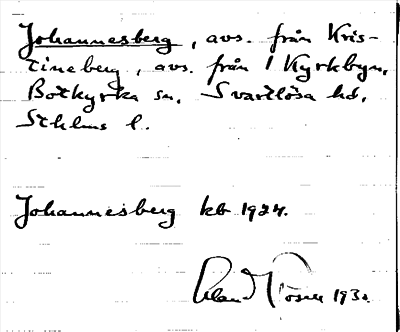 Johannesberg, avs. från Kris-
tineberg, avs. från 1 Kyrkbyn,
Botkyrka sn, Svartlösa hd,
Sthlms l.
Johannesberg kb 1924.
1930